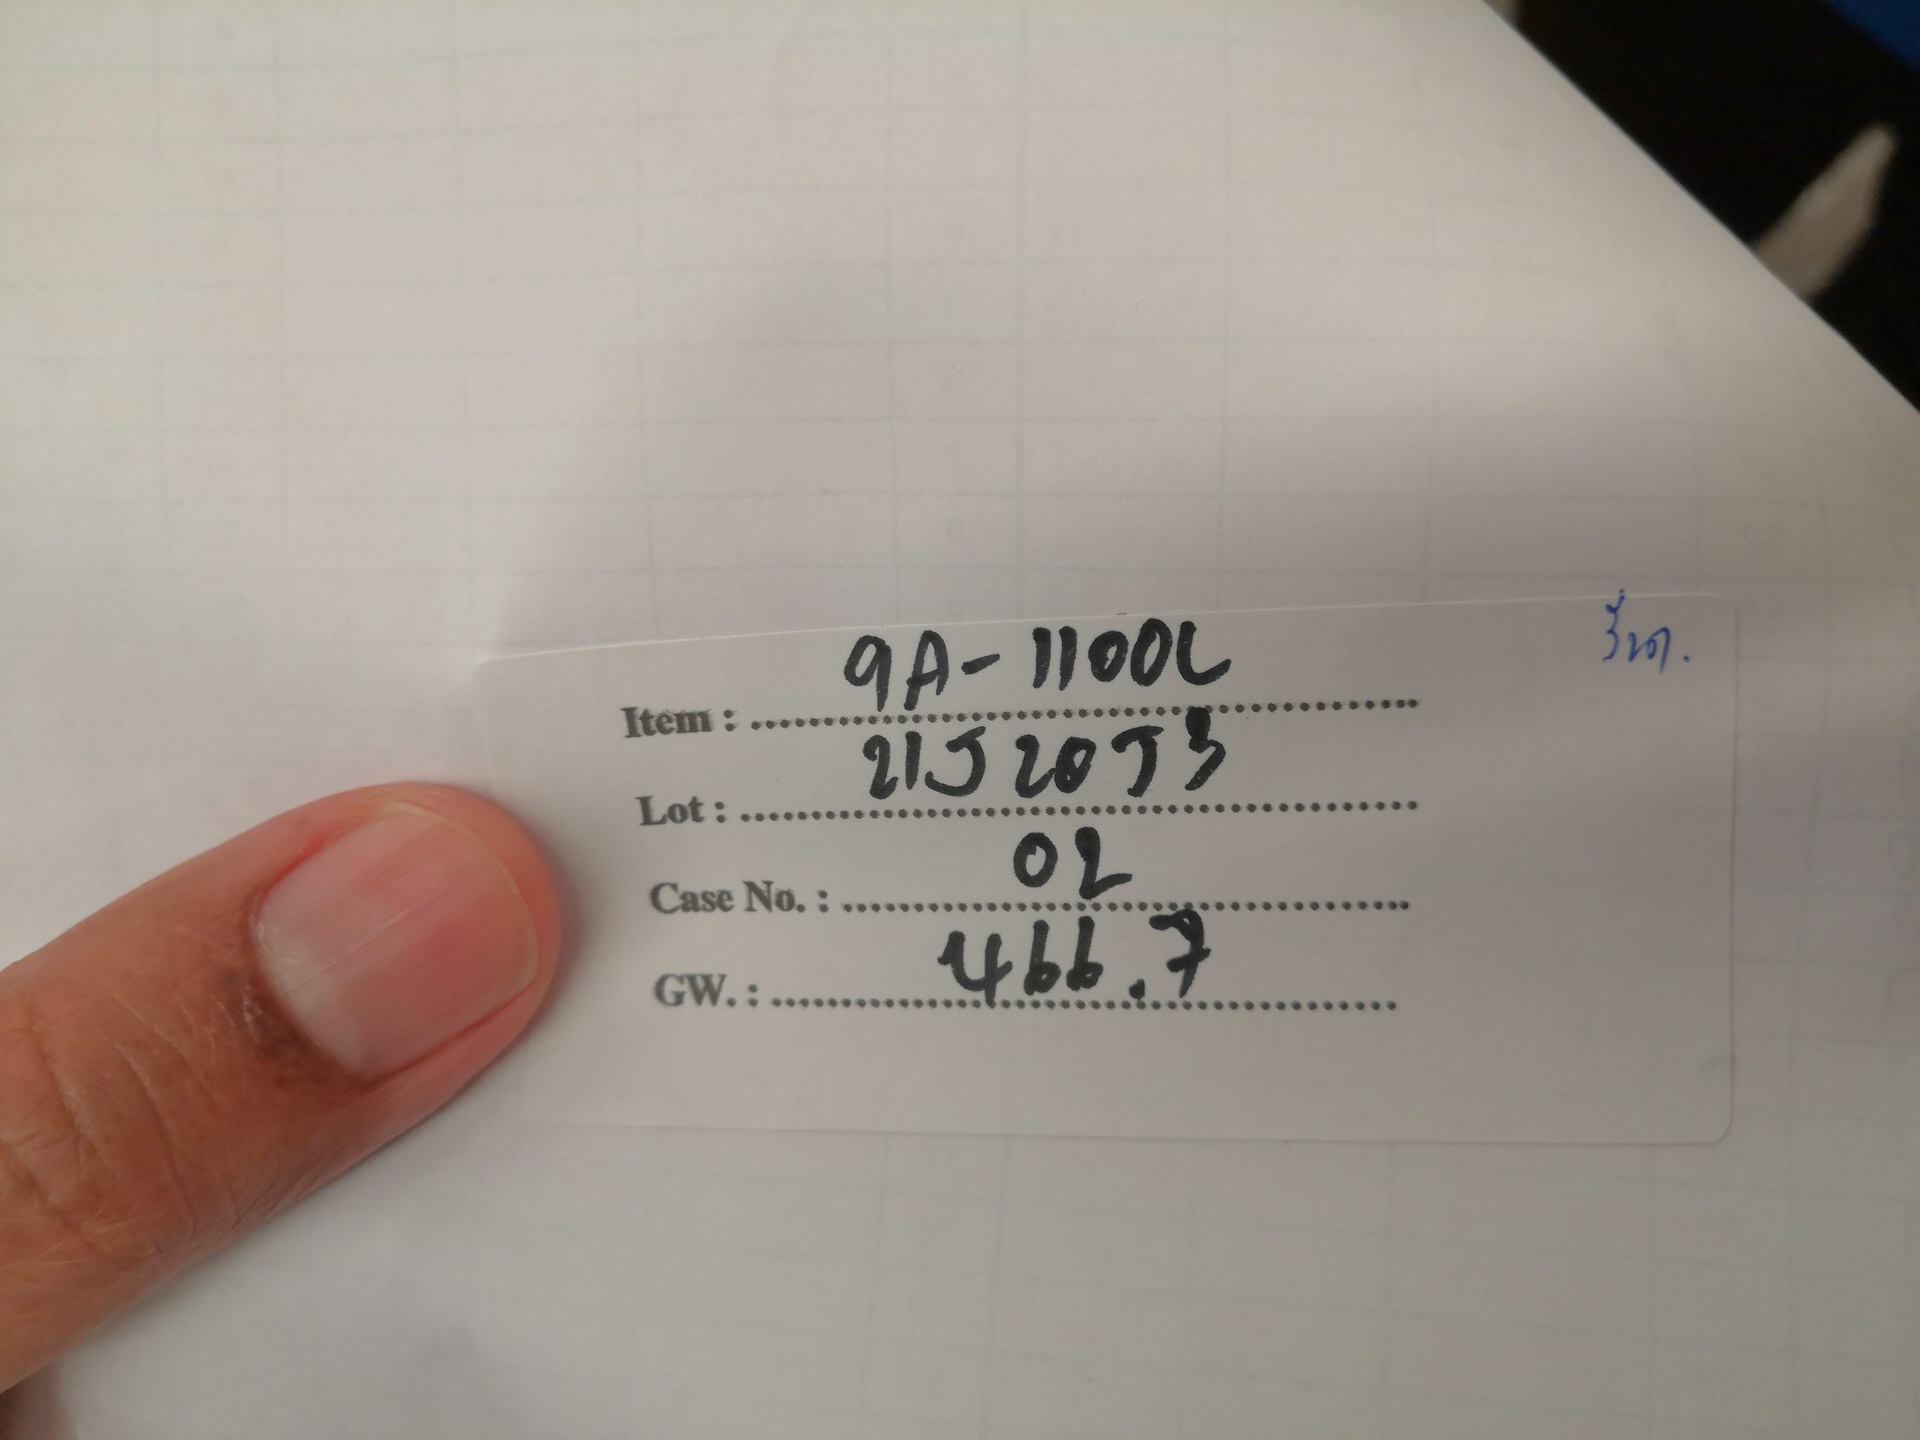 Item : 9A-1100L
Lot : 21J20J3
Case No. : 02
GW. : 466.7